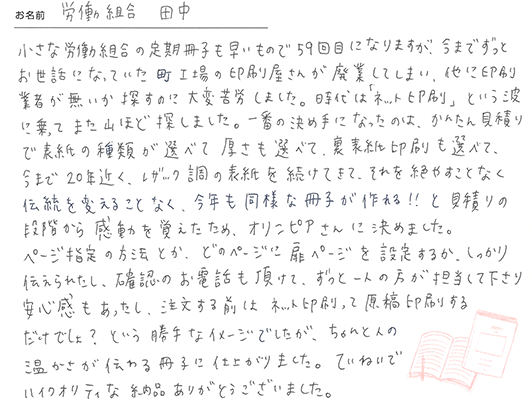 お名前 労働組合 田中
小さな労働組合の定期冊子も早いもので59回目になりますが、今までずっと
お世話になっていた町工場の印刷屋さんが廃業してしまい、他に印刷
業者が無いか探すのに大変苦労しました。時代は「ネット印刷」という波
に乗ってまた山ほど探しました。一番の決め手になったのは、かんたん見積り
で表紙の種類が選べて厚さも選べて、裏表紙印刷も選べて、
今まで20年近く、レザック調の表紙を続けてきて、それを絶やすことなく
伝統を変えることなく、今年も同様な冊子が作れる!!と見積りの
段階から感動を覚えたため、オリンピアさんに決めました。
ページ指定の方法とか、どのページに扉ページを設定するか、しっかり
伝えられたし、確認のお電話も頂けて、ずっと一人の方が担当して下さり
安心感もあったし、注文する前はネット印刷って原稿印刷する
だけでしょ?という勝手なイメージでしたが、ちゃんと人の
温かさが伝わる冊子に仕上がりました。ていねいで
ハイクオリティな納品ありがとうございました。